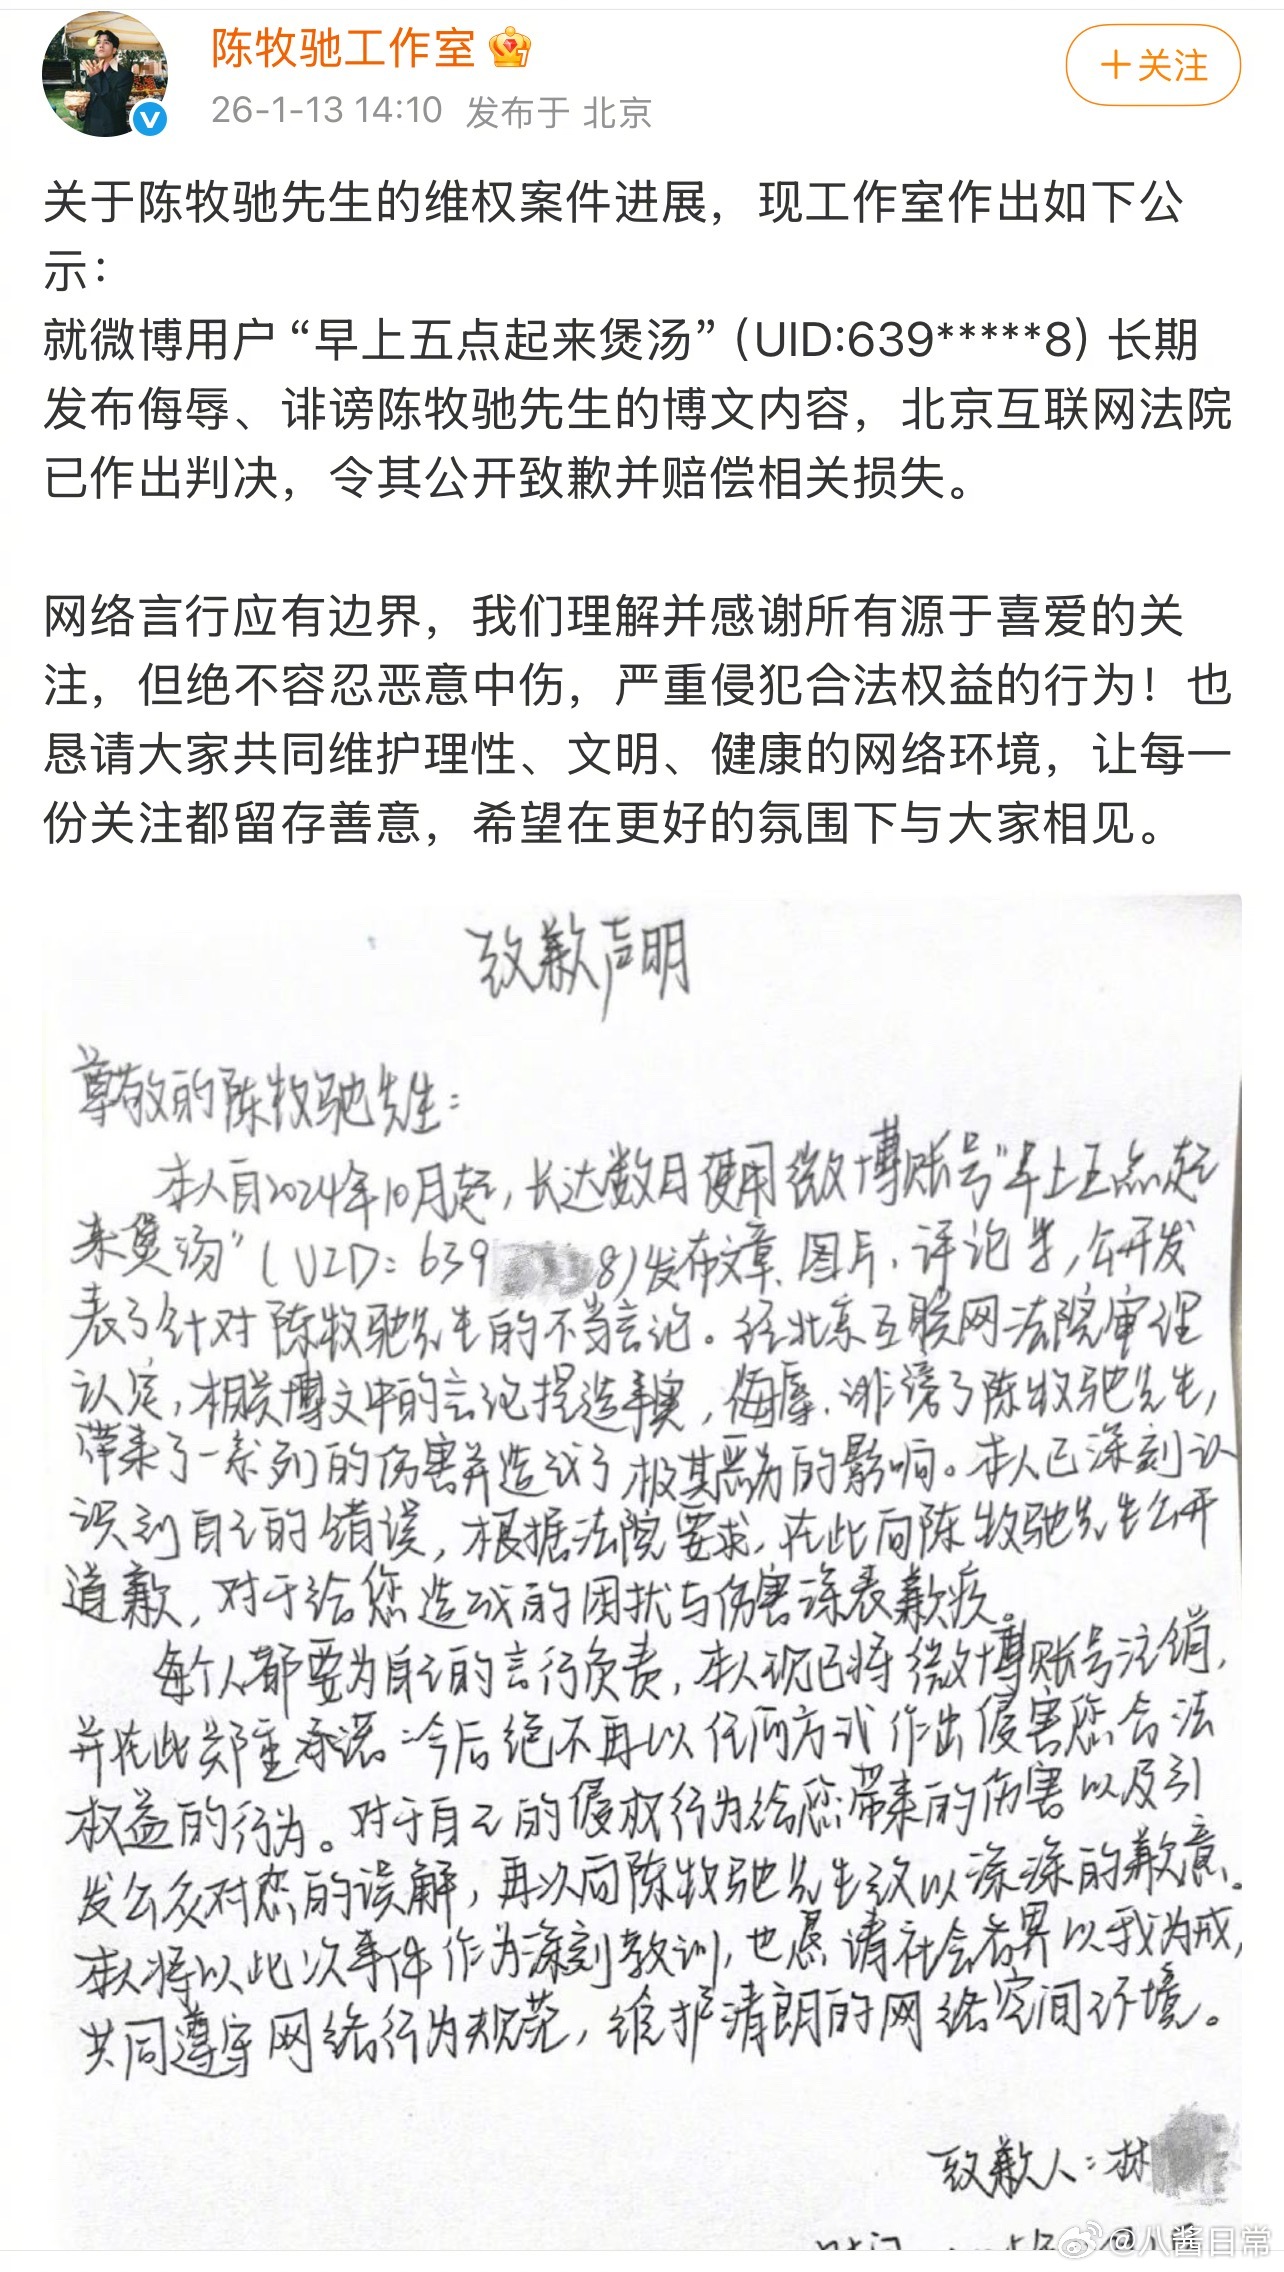 陈牧驰工作室
+关注
26-1-13 14:10 发布于 北京
关于陈牧驰先生的维权案件进展，现工作室作出如下公
示：
就微博用户“早上五点起来煲汤”（UID:639*****8）长期
发布侮辱、诽谤陈牧驰先生的博文内容，北京互联网法院
已作出判决，令其公开致歉并赔偿相关损失。
网络言行应有边界，我们理解并感谢所有源于喜爱的关
注，但绝不容忍恶意中伤，严重侵犯合法权益的行为！也
恳请大家共同维护理性、文明、健康的网络环境，让每一
份关注都留存善意，希望在更好的氛围下与大家相见。
致歉声明
尊敬的陈牧驰先生：
本人自2024年10月起，长达数月使用微博账号“早上五点起
来煲汤”（UID：639 8）发布文章、图片、评论等，公开发
表了针对陈牧驰先生的不当言论。经北京互联网法院审理
认定，相关博文中的言论捏造事实，侮辱、诽谤了陈牧驰先生，
带来了一系列的伤害并造成了极其恶劣的影响。本人已深刻认
识到自己的错误，根据法院要求，在此向陈牧驰先生公开
道歉，对于给您造成的困扰与伤害深表歉疚。
每个人都要为自己的言行负责，本人现已将微博账号注销，
并在此郑重承诺：今后绝不再以任何方式作出侵害您合法
权益的行为。对于自己的侵权行为给您带来的伤害以及引
发公众对您的误解，再次向陈牧驰先生致以深深的歉意。
本人将以此次事件作为深刻教训，也恳请社会各界以我为戒，
共同遵守网络行为规范，维护清朗的网络空间环境。
致歉人：林
@八酱日常